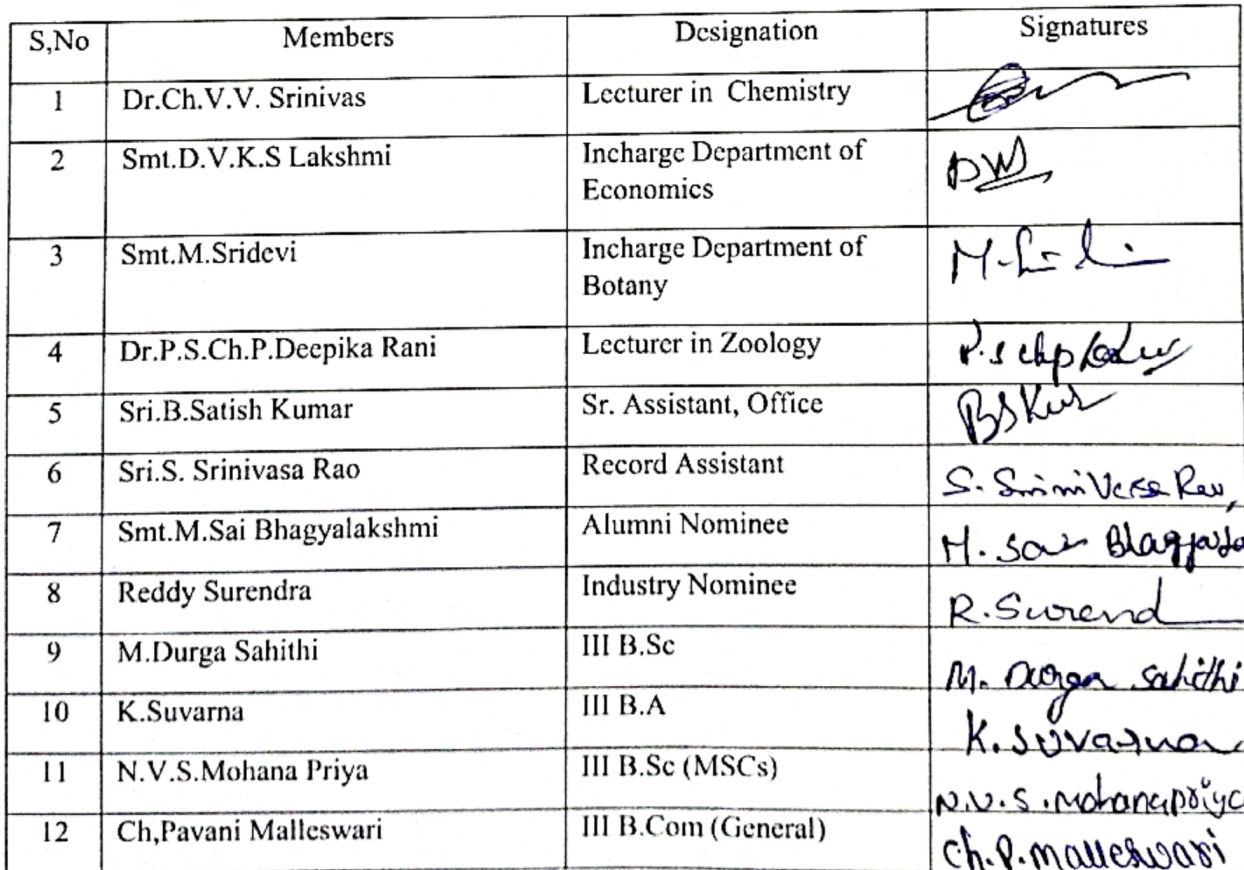 S,No Members Designation Signatures
1 Dr.Ch.V.V. Srinivas Lecturer in Chemistry
2 Smt.D.V.K.S Lakshmi Incharge Department of
Economics
3 Smt.M.Sridevi Incharge Department of
Botany
4 Dr.P.S.Ch.P.Deepika Rani Lecturer in Zoology
5 Sri.B.Satish Kumar Sr. Assistant, Office
6 Sri.S. Srinivasa Rao Record Assistant
7 Smt.M.Sai Bhagyalakshmi Alumni Nominee M. Sai
8 Reddy Surendra Industry Nominee R. Surend
9 M.Durga Sahithi III B.Sc M. Durga Sahithi
10 K.Suvarna III B.A K. Suvarna
11 N.V.S.Mohana Priya III B.Sc (MSCs) N.V.S.Mohanapriya
12 Ch,Pavani Malleswari III B.Com (General) Ch.P.Malleswari